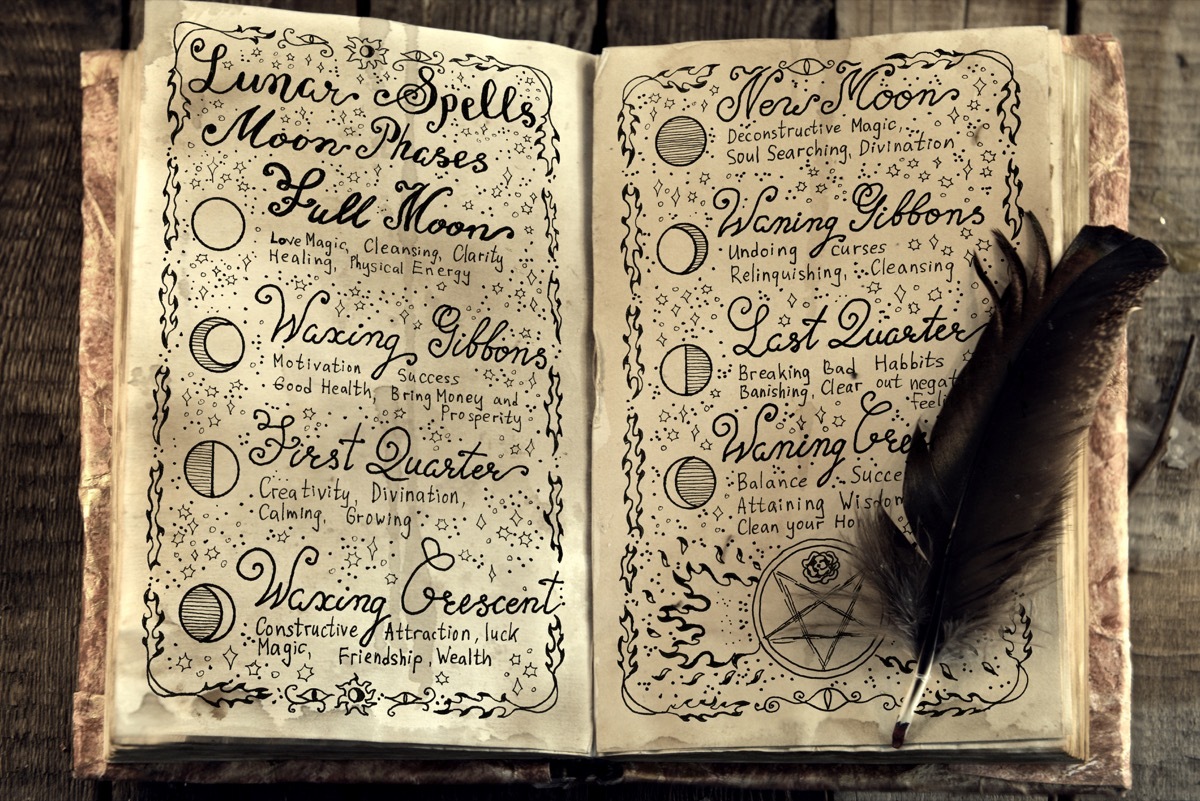 Lunar Spells
Moon Phases
Full Moon
Love Magic, Cleansing, Clarity
Healing, Physical Energy
Waxing Gibbons
Motivation Success
Good Health, Bring Money and
Prosperity
First Quarter
Creativity, Divination,
Calming, Growing
Waxing Crescent
Constructive Attraction, luck
Magic, Friendship, Wealth
New Moon
Deconstructive Magic,
Soul Searching, Divination
Waning Gibbons
Undoing curses
Relinquishing, Cleansing
Last Quarter
Breaking Bad Habbits
Banishing, Clear out
Waning
Balance
Attaining Wisdom
Clean your